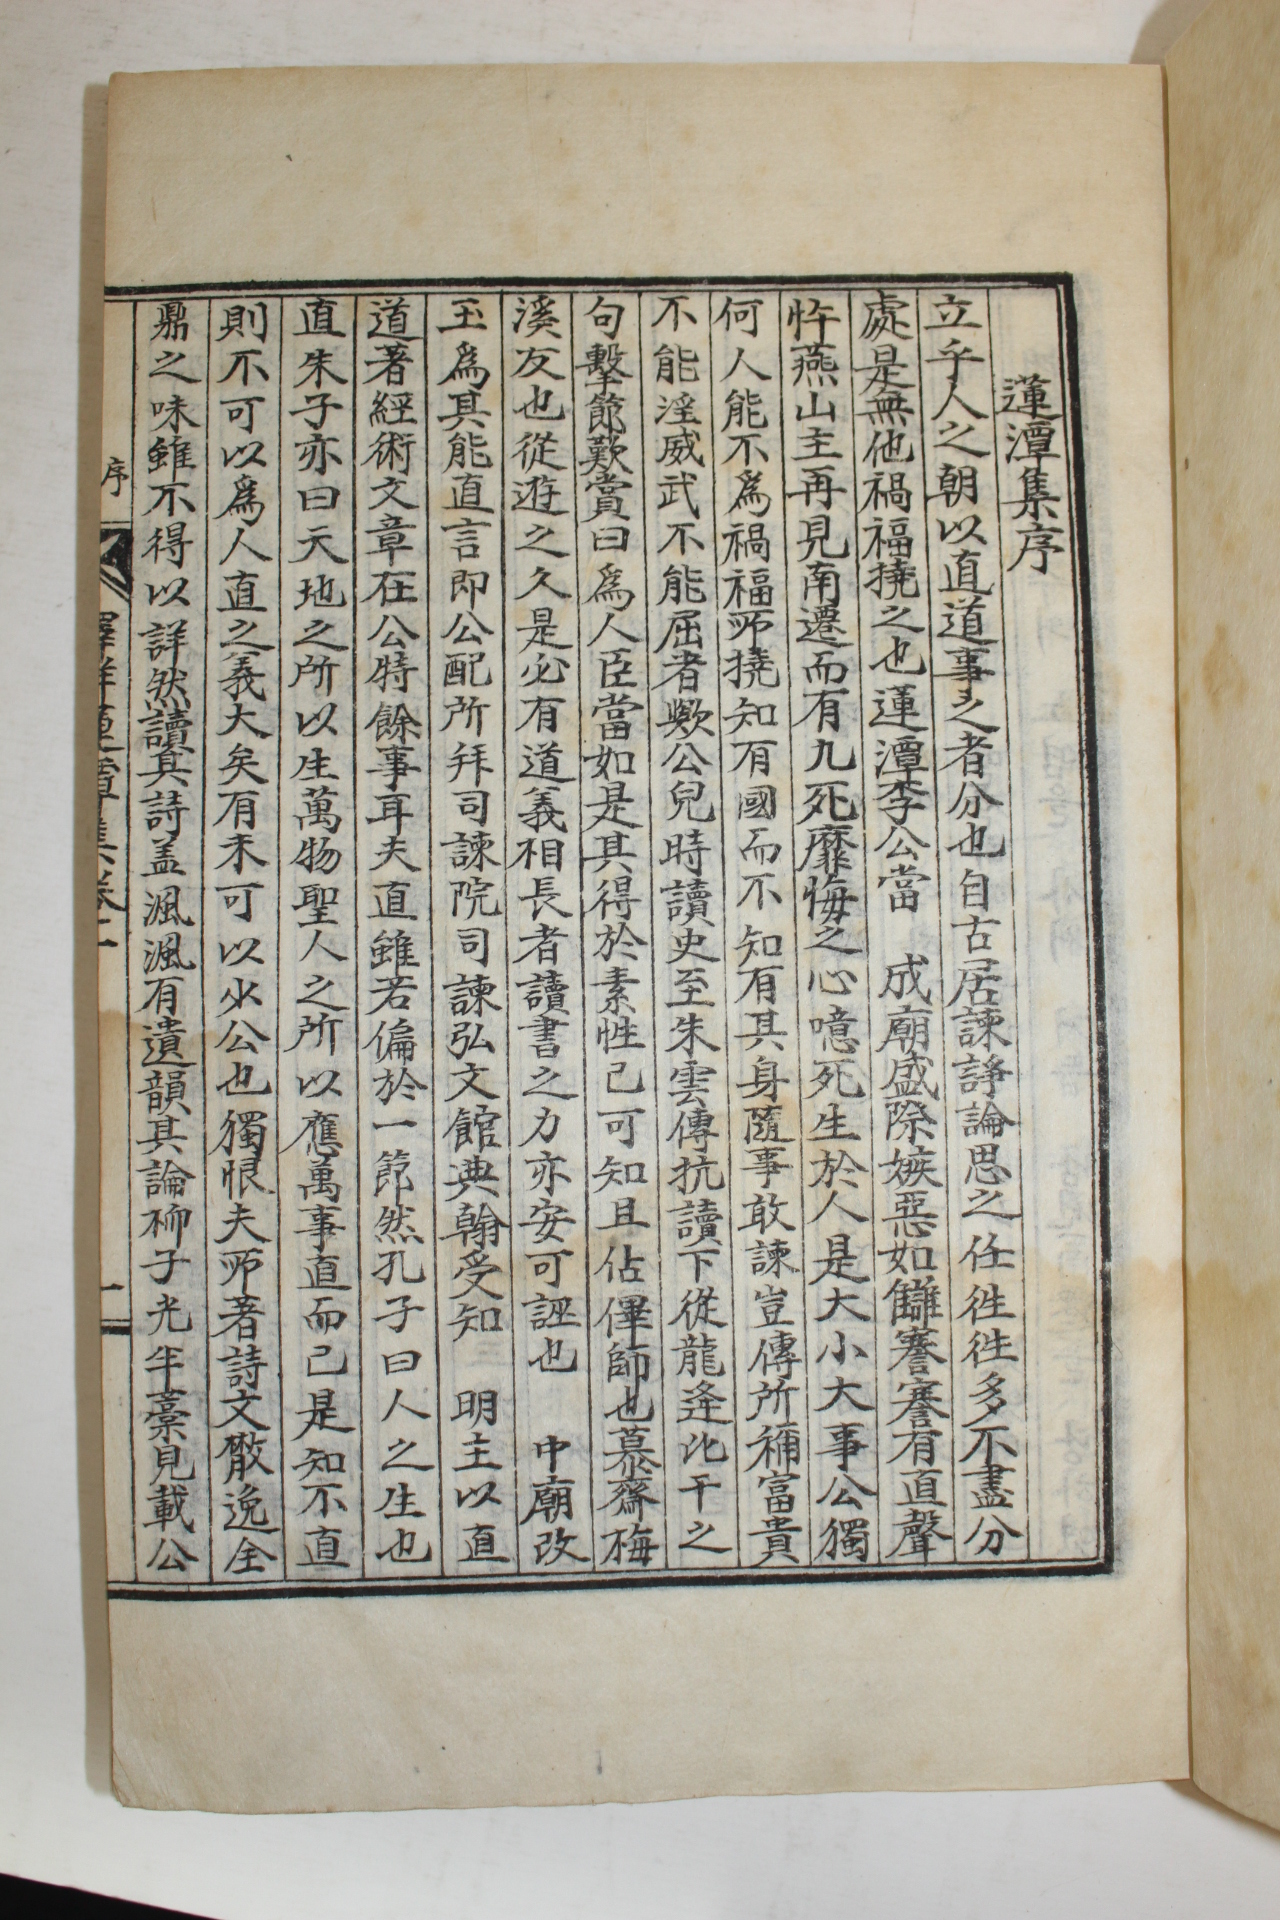 蓮潭集序
立乎人之朝以直道事之者分也自古居諫諍論思之任徃徃多不盡分
處是無他禍福撓之也蓮潭李公當 成廟盛際嫉惡如讎謇謇有直聲
忤燕山主再見南遷而有九死靡悔之心噫死生於人是大小大事公獨
何人能不爲禍福所撓知有國而不知有其身隨事敢諫豈傳所稱富貴
不能淫威武不能屈者歟公兒時讀史至朱雲傳抗讀下從龍逄比干之
句擊節歎賞曰爲人臣當如是其得於素性已可知且佔僤師也慕齋梅
溪友也從遊之久是必有道義相長者讀書之力亦安可誣也 中廟改
玉爲其能直言即公配所拜司諫院司諫弘文館典翰受知 明主以直
道著經術文章在公特餘事耳夫直雖若偏於一節然孔子曰人之生也
直朱子亦曰天地之所以生萬物聖人之所以應萬事直而已是知不直
則不可以爲人直之義大矣有未可以少公也獨恨夫所著詩文散逸全
鼎之味雖不得以詳然讀其詩盖渢渢有遺韻其論柳子光半藁見載公
序
蓮潭集卷之一
一